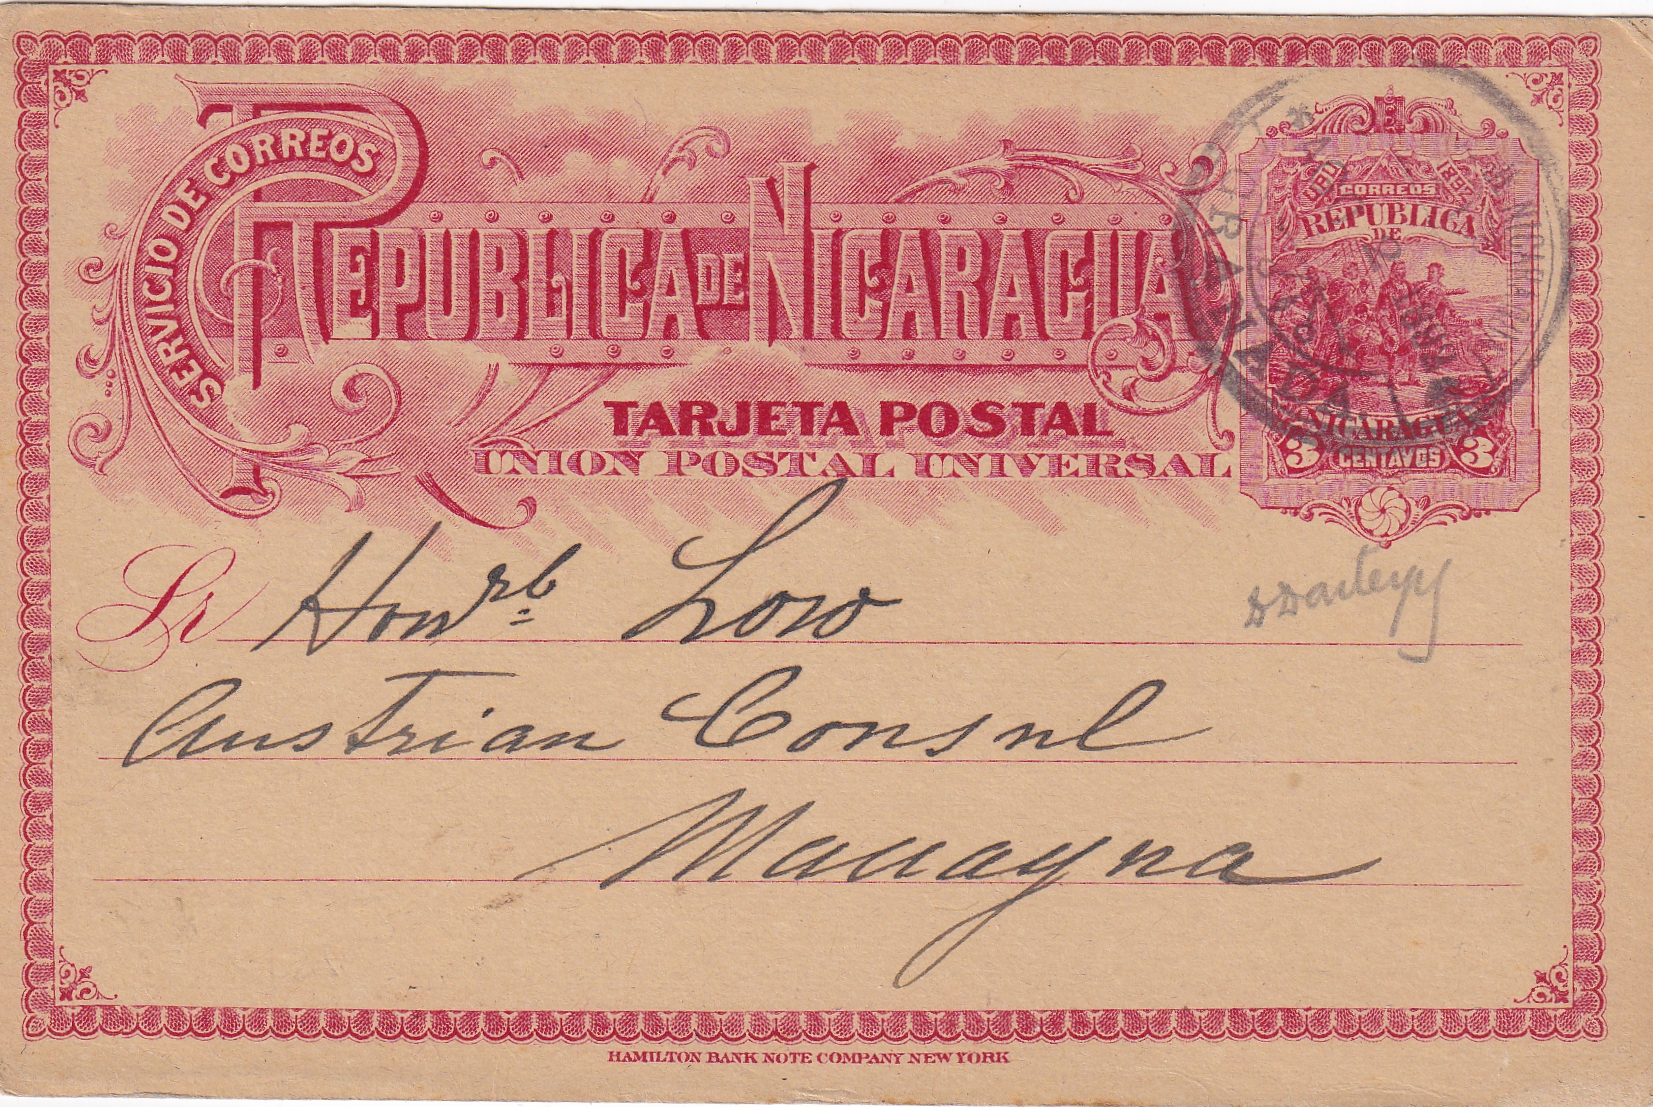 SERVICIO DE CORREOS
REPUBLICA DE NICARAGUA
TARJETA POSTAL
UNION POSTAL UNIVERSAL
CORREOS
REPUBLICA
DE
NICARAGUA
3 CENTAVOS 3
GRANADA
Sr Honrb Low
Austrian Consul
Managua
HAMILTON BANK NOTE COMPANY NEW YORK